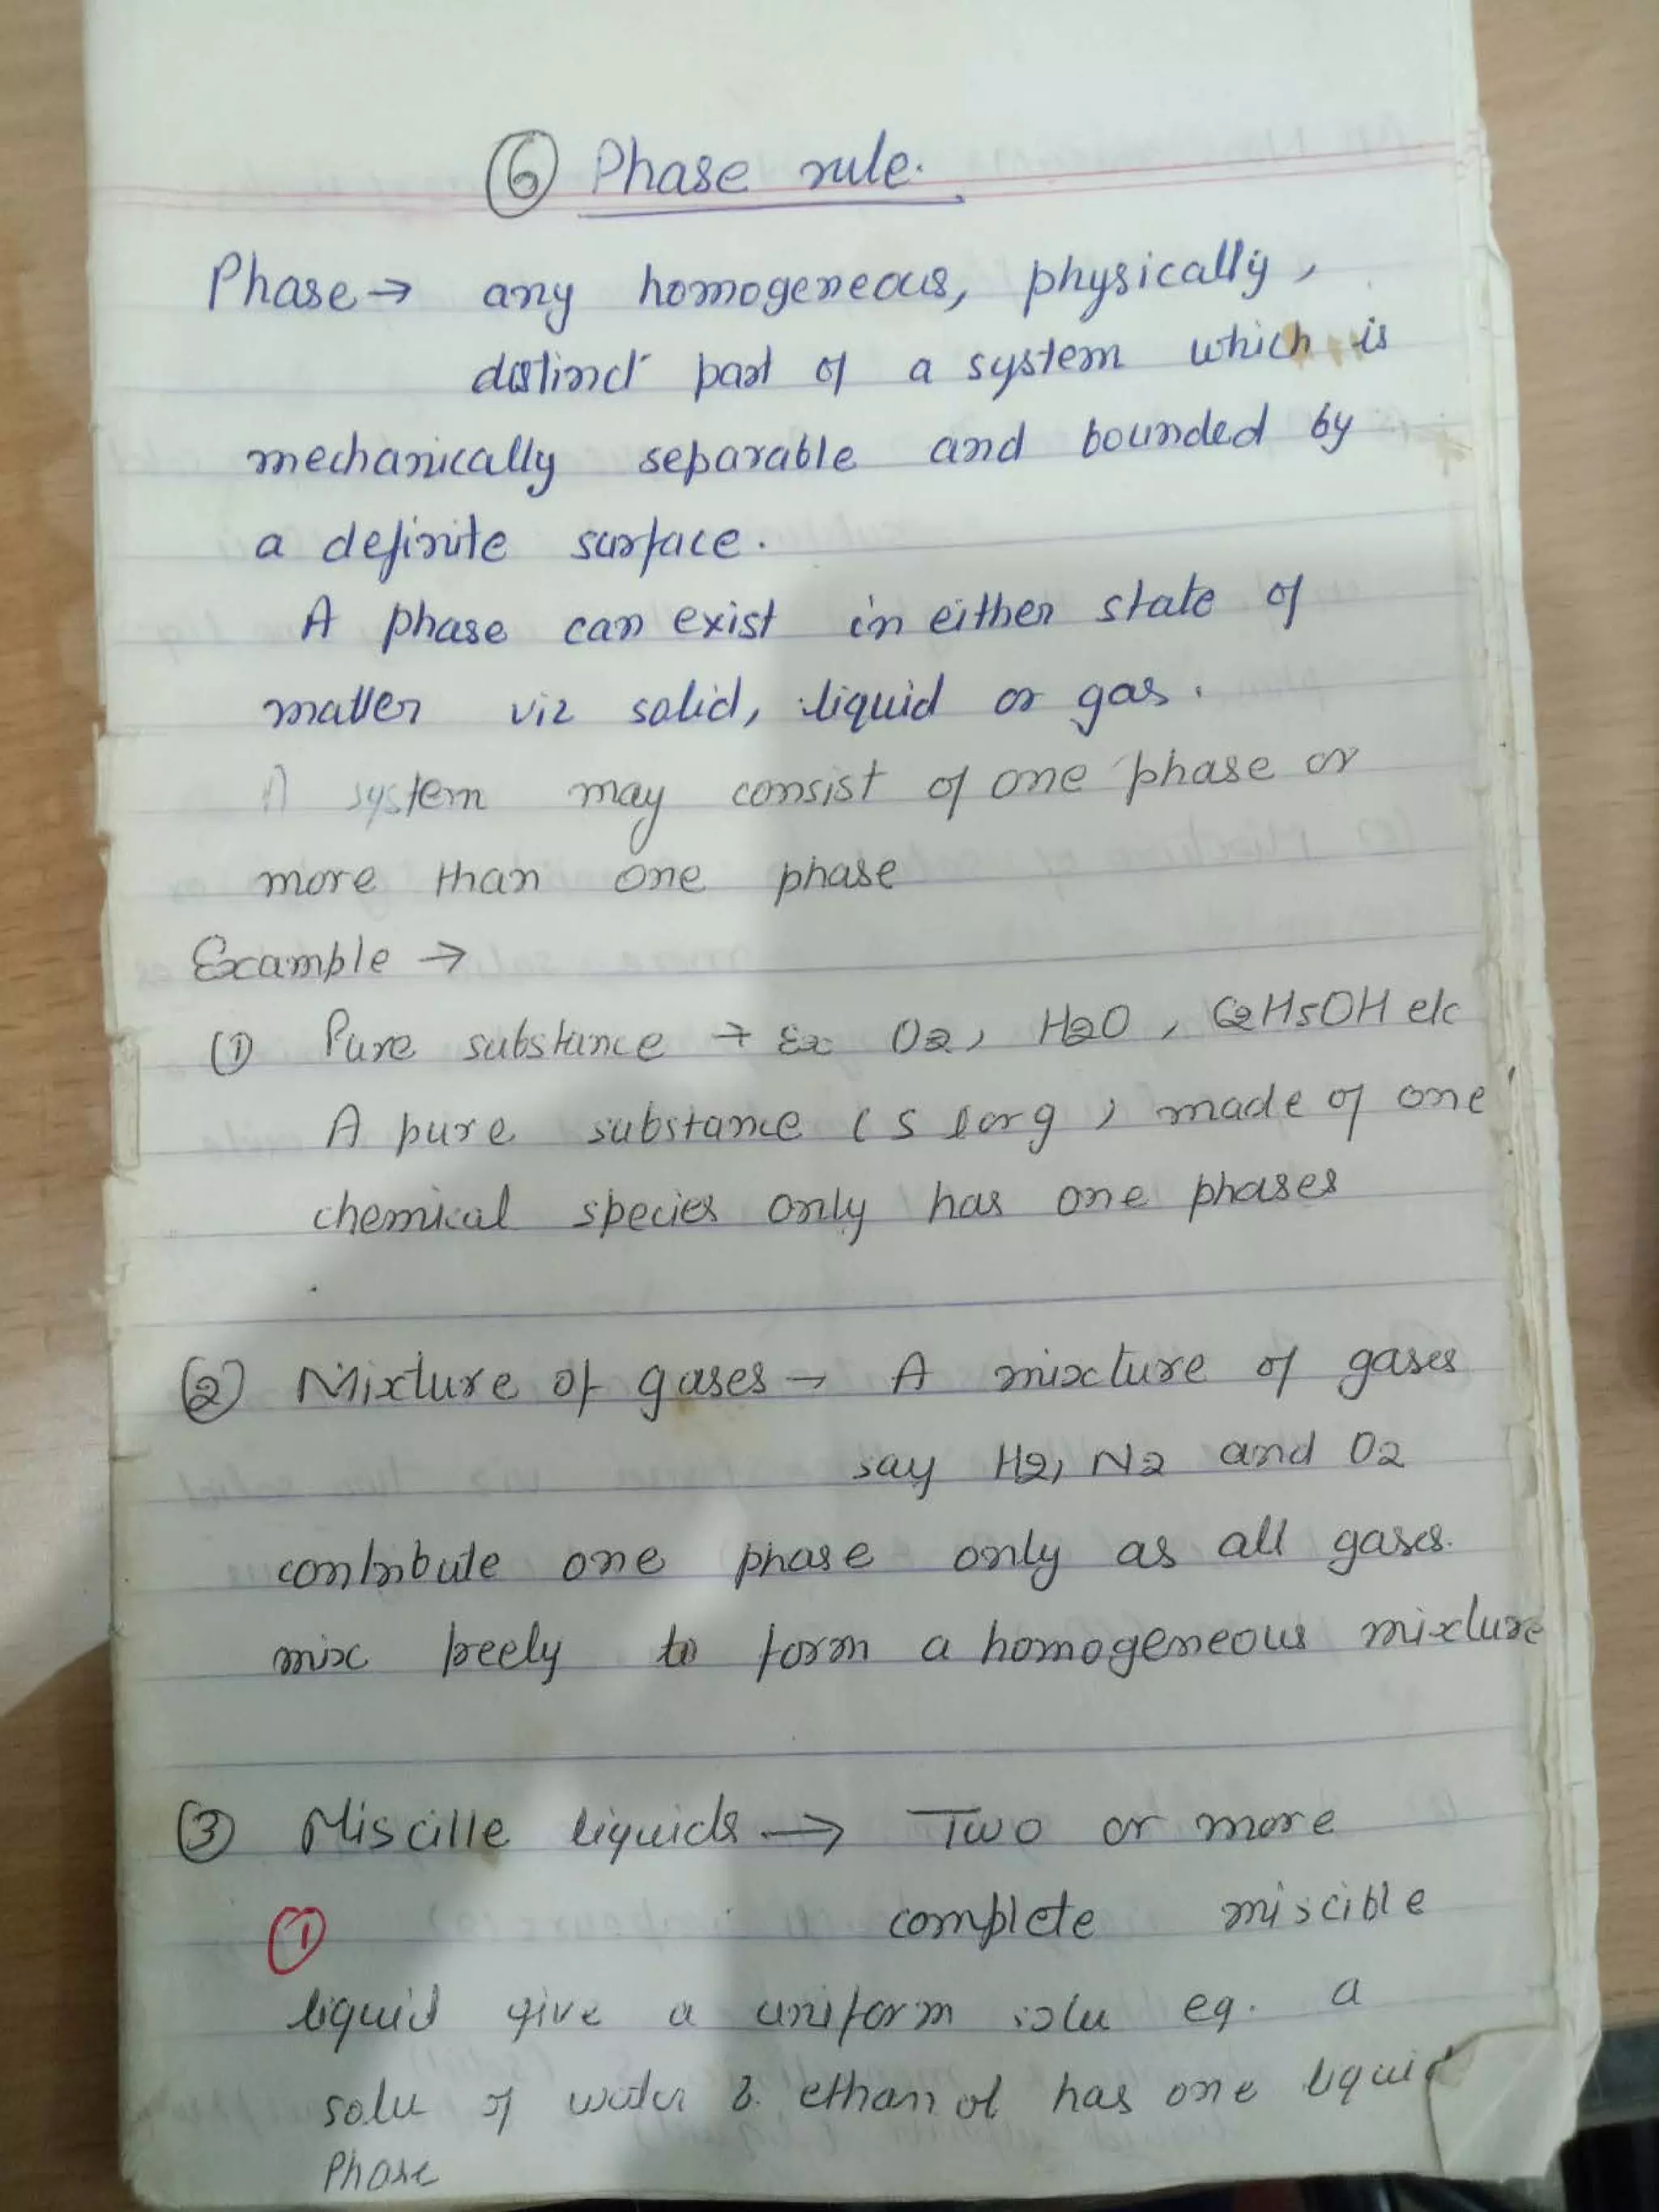 ⑥ Phase rule.
Phase → any homogeneous, physically,
distinct part of a system which is
mechanically separable and bounded by
a definite surface.
A phase can exist in either state of
matter viz solid, liquid or gas.
A system may consist of one phase or
more than one phase
Example →
① Pure substance → Ex O2, H2O, C2H5OH etc
A pure substance (s l or g) made of one
chemical species only has one phases
② Mixture of gases → A mixture of gases
say H2, N2 and O2
contribute one phase only as all gases.
mix freely to form a homogeneous mixture
③ Miscille liquids → Two or more
complete miscible
①
liquid give a uniform solu eg. a
solu of water & ethanol has one liquid
Phase